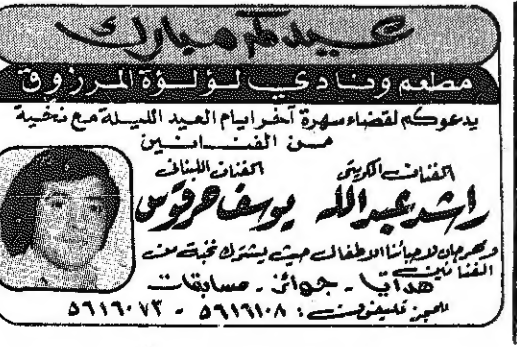 عيدكم مبارك
مطعم ونادي لؤلؤة المرزوق
يدعوكم لقضاء سهرة آخر ايام العيد الليلة مع نخبة
من الفنانين
الفنان الكويتي
راشد عبدالله
الفنان اللبناني
يوسف حرقوس
ومهرجان لاحبائنا الاطفال حيث يشترك نخبة من
الفنانين
هدايا - جوائز - مسابقات
للحجز تليفون: ٥٦١٦١٠٨ - ٥٦١٦٠٧٣